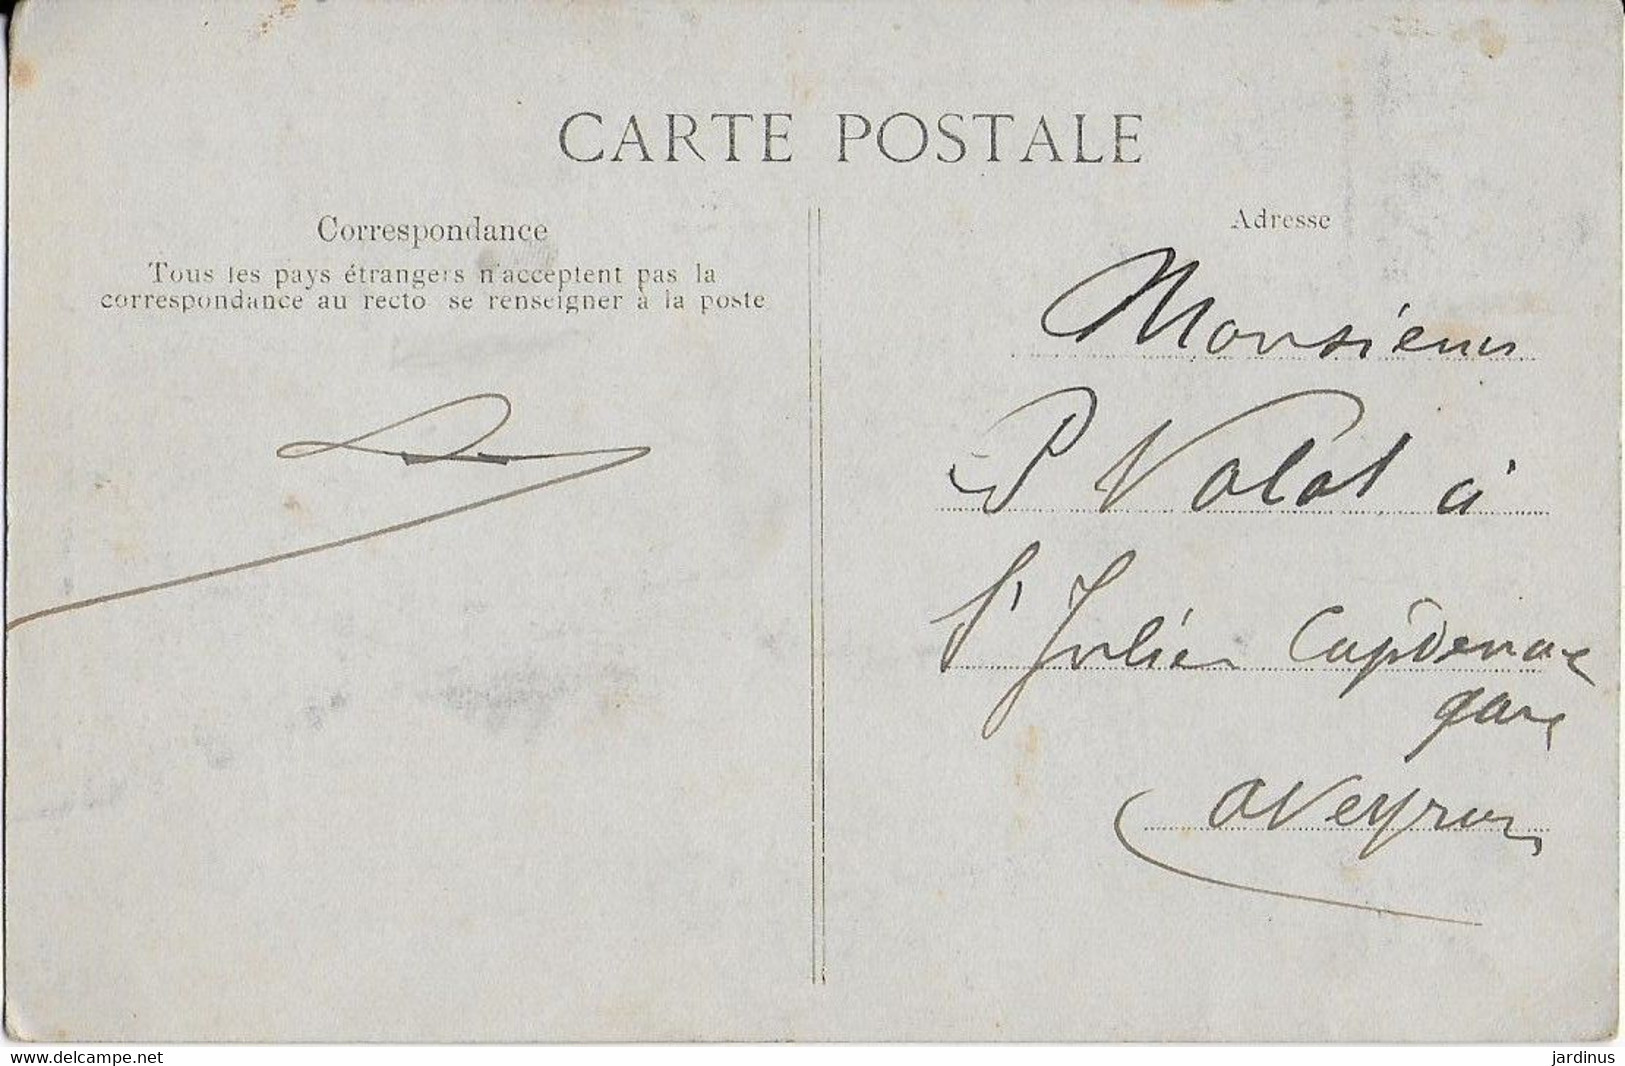 CARTE POSTALE
Correspondance
Tous les pays étrangers n'acceptent pas la
correspondance au recto se renseigner à la poste
Adresse
Monsieur
P Valat à
St Julien Capdenac
gare
aveyron
www.delcampe.net
jardinus